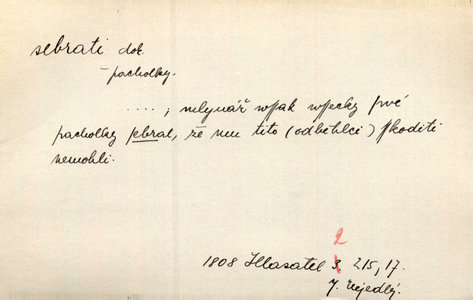 sebrati dok.
- pacholky.
. . . . ; mlynář wssak wssecky swé
pacholky sebral, že mu tito (odběhlci) sskoditi
nemohli.
2
1808 Hlasatel 3, 215, 17.
J. Nejedlý.